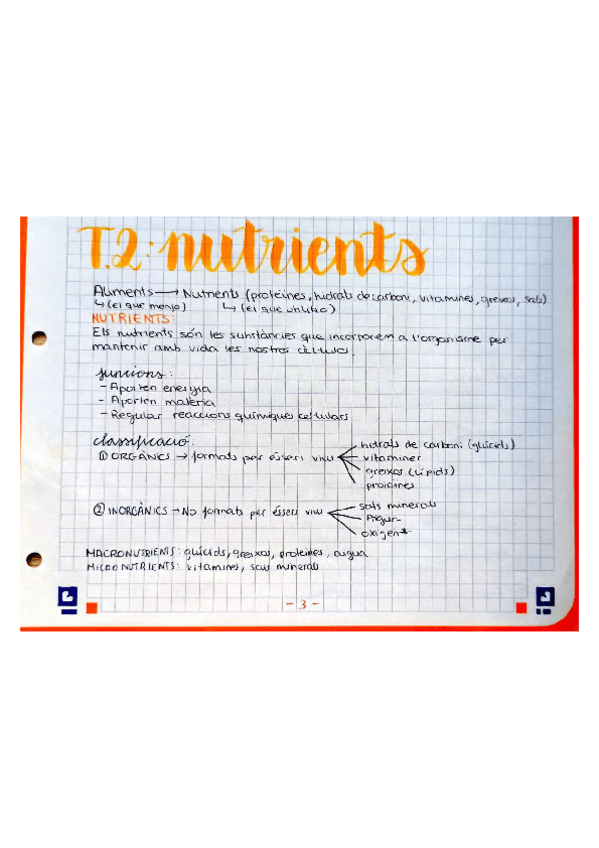 T.2: nutrients
Aliments → Nutrients (proteïnes, hidrats de carboni, vitamines, greixos, sals)
↳ (el que menjo) ↳ (el que utilitzo)
NUTRIENTS:
Els nutrients són les substàncies que incorporem a l'organisme per
mantenir amb vida les nostres cèl·lules.
funcions:
- Aporten energia
- Aporten matèria
- Regular reaccions químiques cel·lulars
classificació:
① ORGÀNICS → formats per éssers vius
hidrats de carboni (glúcids)
vitamines
greixos (lípids)
proteïnes
② INORGÀNICS → No formats per éssers vius
sals minerals
Aigua
oxigen*
MACRONUTRIENTS: glúcids, greixos, proteïnes, aigua
MICRONUTRIENTS: vitamines, sals minerals
- 3 -